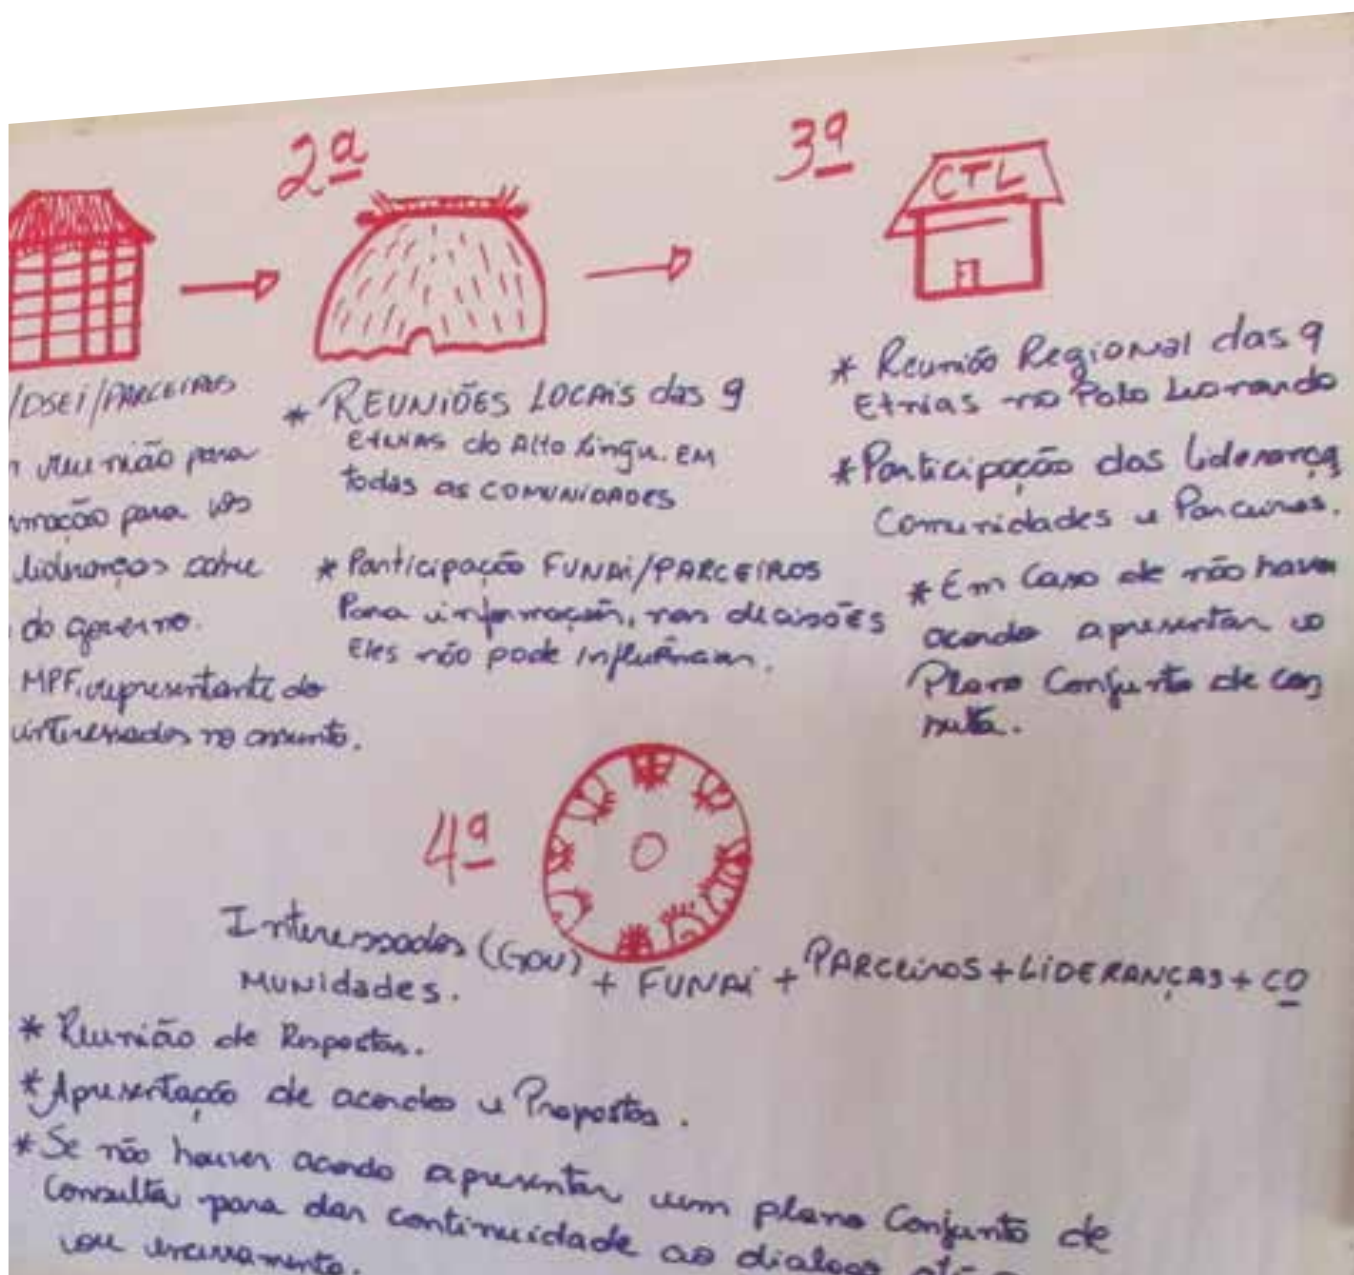 2ª
3ª
CTL
/DSEI/PARCEIROS
reunião para
mação para os
lideranças sobre
do governo.
MPF, representante do
interessados no assunto.
* REUNIÕES LOCAIS das 9
ETNIAS do Alto Xingu. EM
todas as COMUNIDADES
* Participação FUNAI/PARCEIROS
Para informação, nas decisões
Eles não pode influênciam.
* Reunião Regional das 9
Etnias no Polo Leonardo
* Participação das lideranças
Comunidades e Parceiros.
* Em Caso de não haver
acordo apresentar o
Plano Conjunto de con
sulta.
4ª
Interessados (GOV) + FUNAI + PARCEIROS + LIDERANÇAS + CO
MUNIDADES.
* Reunião de Respostas.
* Apresentação de acordos e Propostas.
* Se não houver acordo apresentar um plano Conjunto de
Consulta para dar continuidade ao dialogo até
ou encerramento.